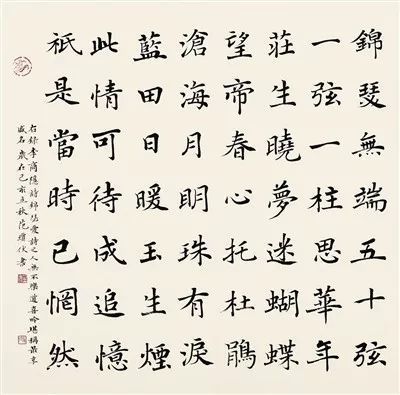 錦瑟無端五十弦
一弦一柱思華年
莊生曉夢迷蝴蝶
望帝春心托杜鵑
滄海月明珠有淚
藍田日暖玉生煙
此情可待成追憶
祇是當時已惘然
右錄李商隱詩錦瑟愛詩之人無不樂道喜吟堪稱最享
盛名歲在己亥立秋范瓊伏書